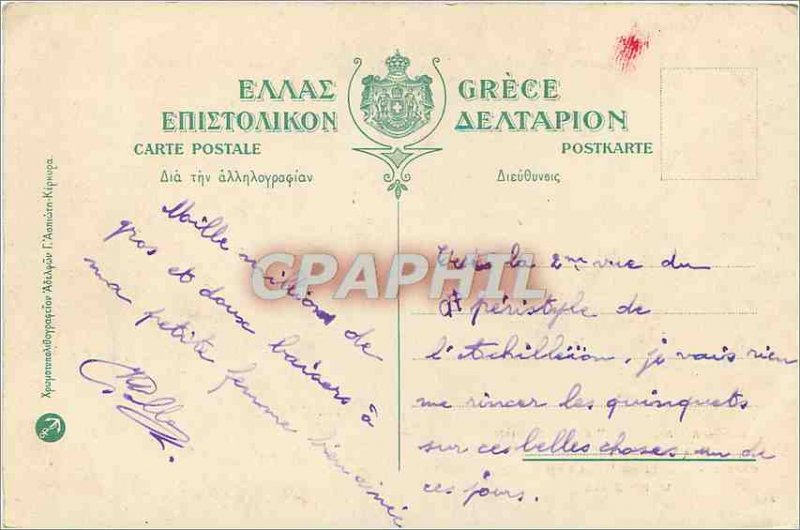 ΕΛΛΑΣ GRÈCE
ΕΠΙΣΤΟΛΙΚΟΝ ΔΕΛΤΑΡΙΟΝ
CARTE POSTALE POSTKARTE
Διὰ τὴν ἀλληλογραφίαν Διεύθυνσις
Χρωματοπολιθογραφεῖον Ἀδελφῶν Γ. Ἀσπιώτη-Κέρκυρα.
Mille millions de
gros et doux baisers à
ma petite femme bien aimée
CPAPHIL
la 2me vue du
gt péristyle de
l'Achilléïon, je vais rien
me rincer les quinquets
sur ces belles choses, un de
ces jours.